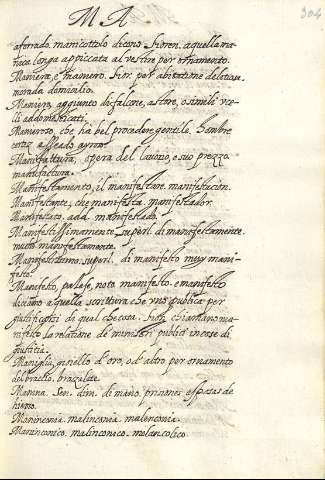 MA
304
aforrado. manicottolo dicono i Fioren. aquella ma
nica longa appiccata al vestire per ornamento.
Maniera, e maniero. Fior. per abitatione delitiosa
morada domicilio.
Maniero, aggiunto di falcone, astore, o simili vce
lli addomesticati.
Manieroso, che ha bel procedere gentile. hombre
cortes asseado ayroso.
Manifattura, opera del lauoro, e suo prezzo
manifactura.
Manifestamento, il manifestare. manifestacion.
Manifestante, che manifesta. manifestador.
Manifestato. add. manifestado.
Manifestissimamente. superl. di manifestamente.
muy manifestamente.
Manifestissimo. superl. di manifesto muy mani-
fiesto.
Manifesto, palese, nota. manifesto. e manifesto
diciamo a quella scrittura che vno publica per
giustificarsi di qual che cosa. Fior. chiamano ma
nifesto la relatione de ministri publici in cose di
giustitia.
Maniglia, gioiello di oro, o d'altro per ornamento
del braccio. brazalete.
Manina. Sen. dim. di mano.
hierro.
Maninconia. malinconia. malenconia.
Maninconico. malinconico. melancolico.